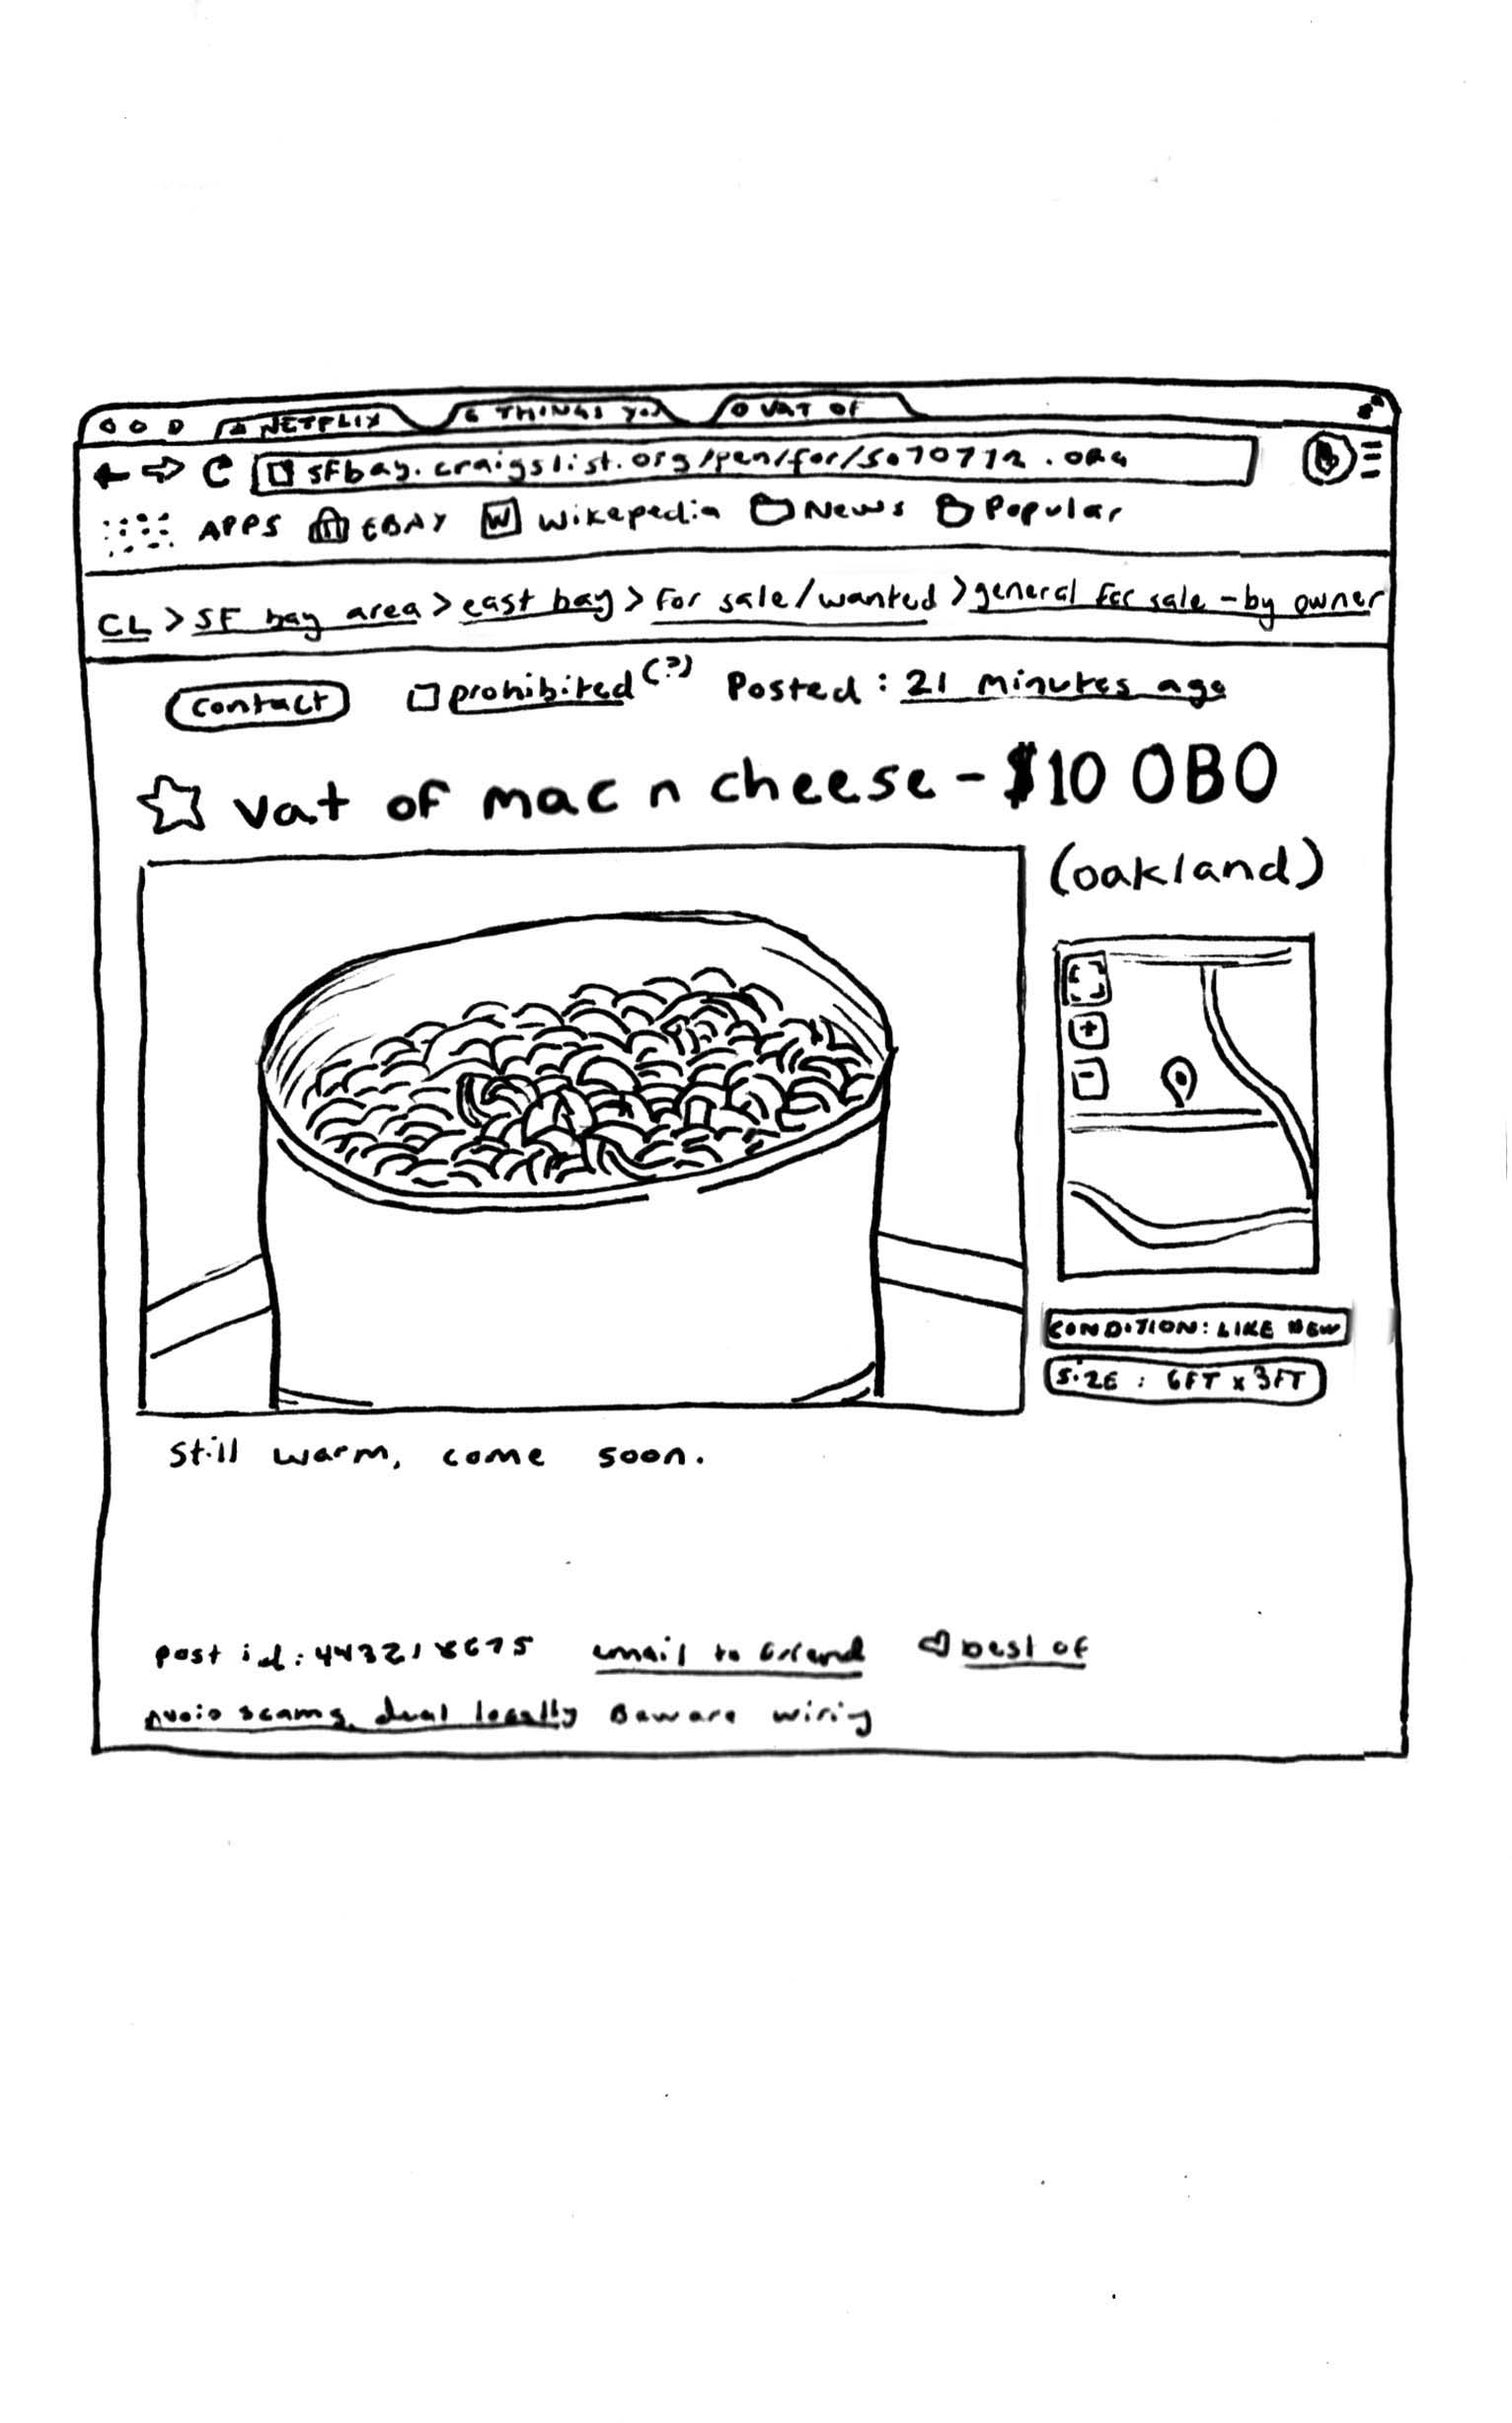 NETPLIX 6 THINGS YOU VAT OF
sfbay.craigslist.org/pen/for/5070712.org
APPS EBAY W Wikepedia News Popular
CL > SF bay area > east bay > for sale/wanted > general for sale - by owner
contact prohibited (?) Posted: 21 minutes ago
vat of mac n cheese - $10 OBO
(oakland)
+
-
CONDITION: LIKE NEW
SIZE: 6FT x 3FT
Still warm, come soon.
post id: 443218675 email to friend best of
Avoid scams, deal locally Beware wiring